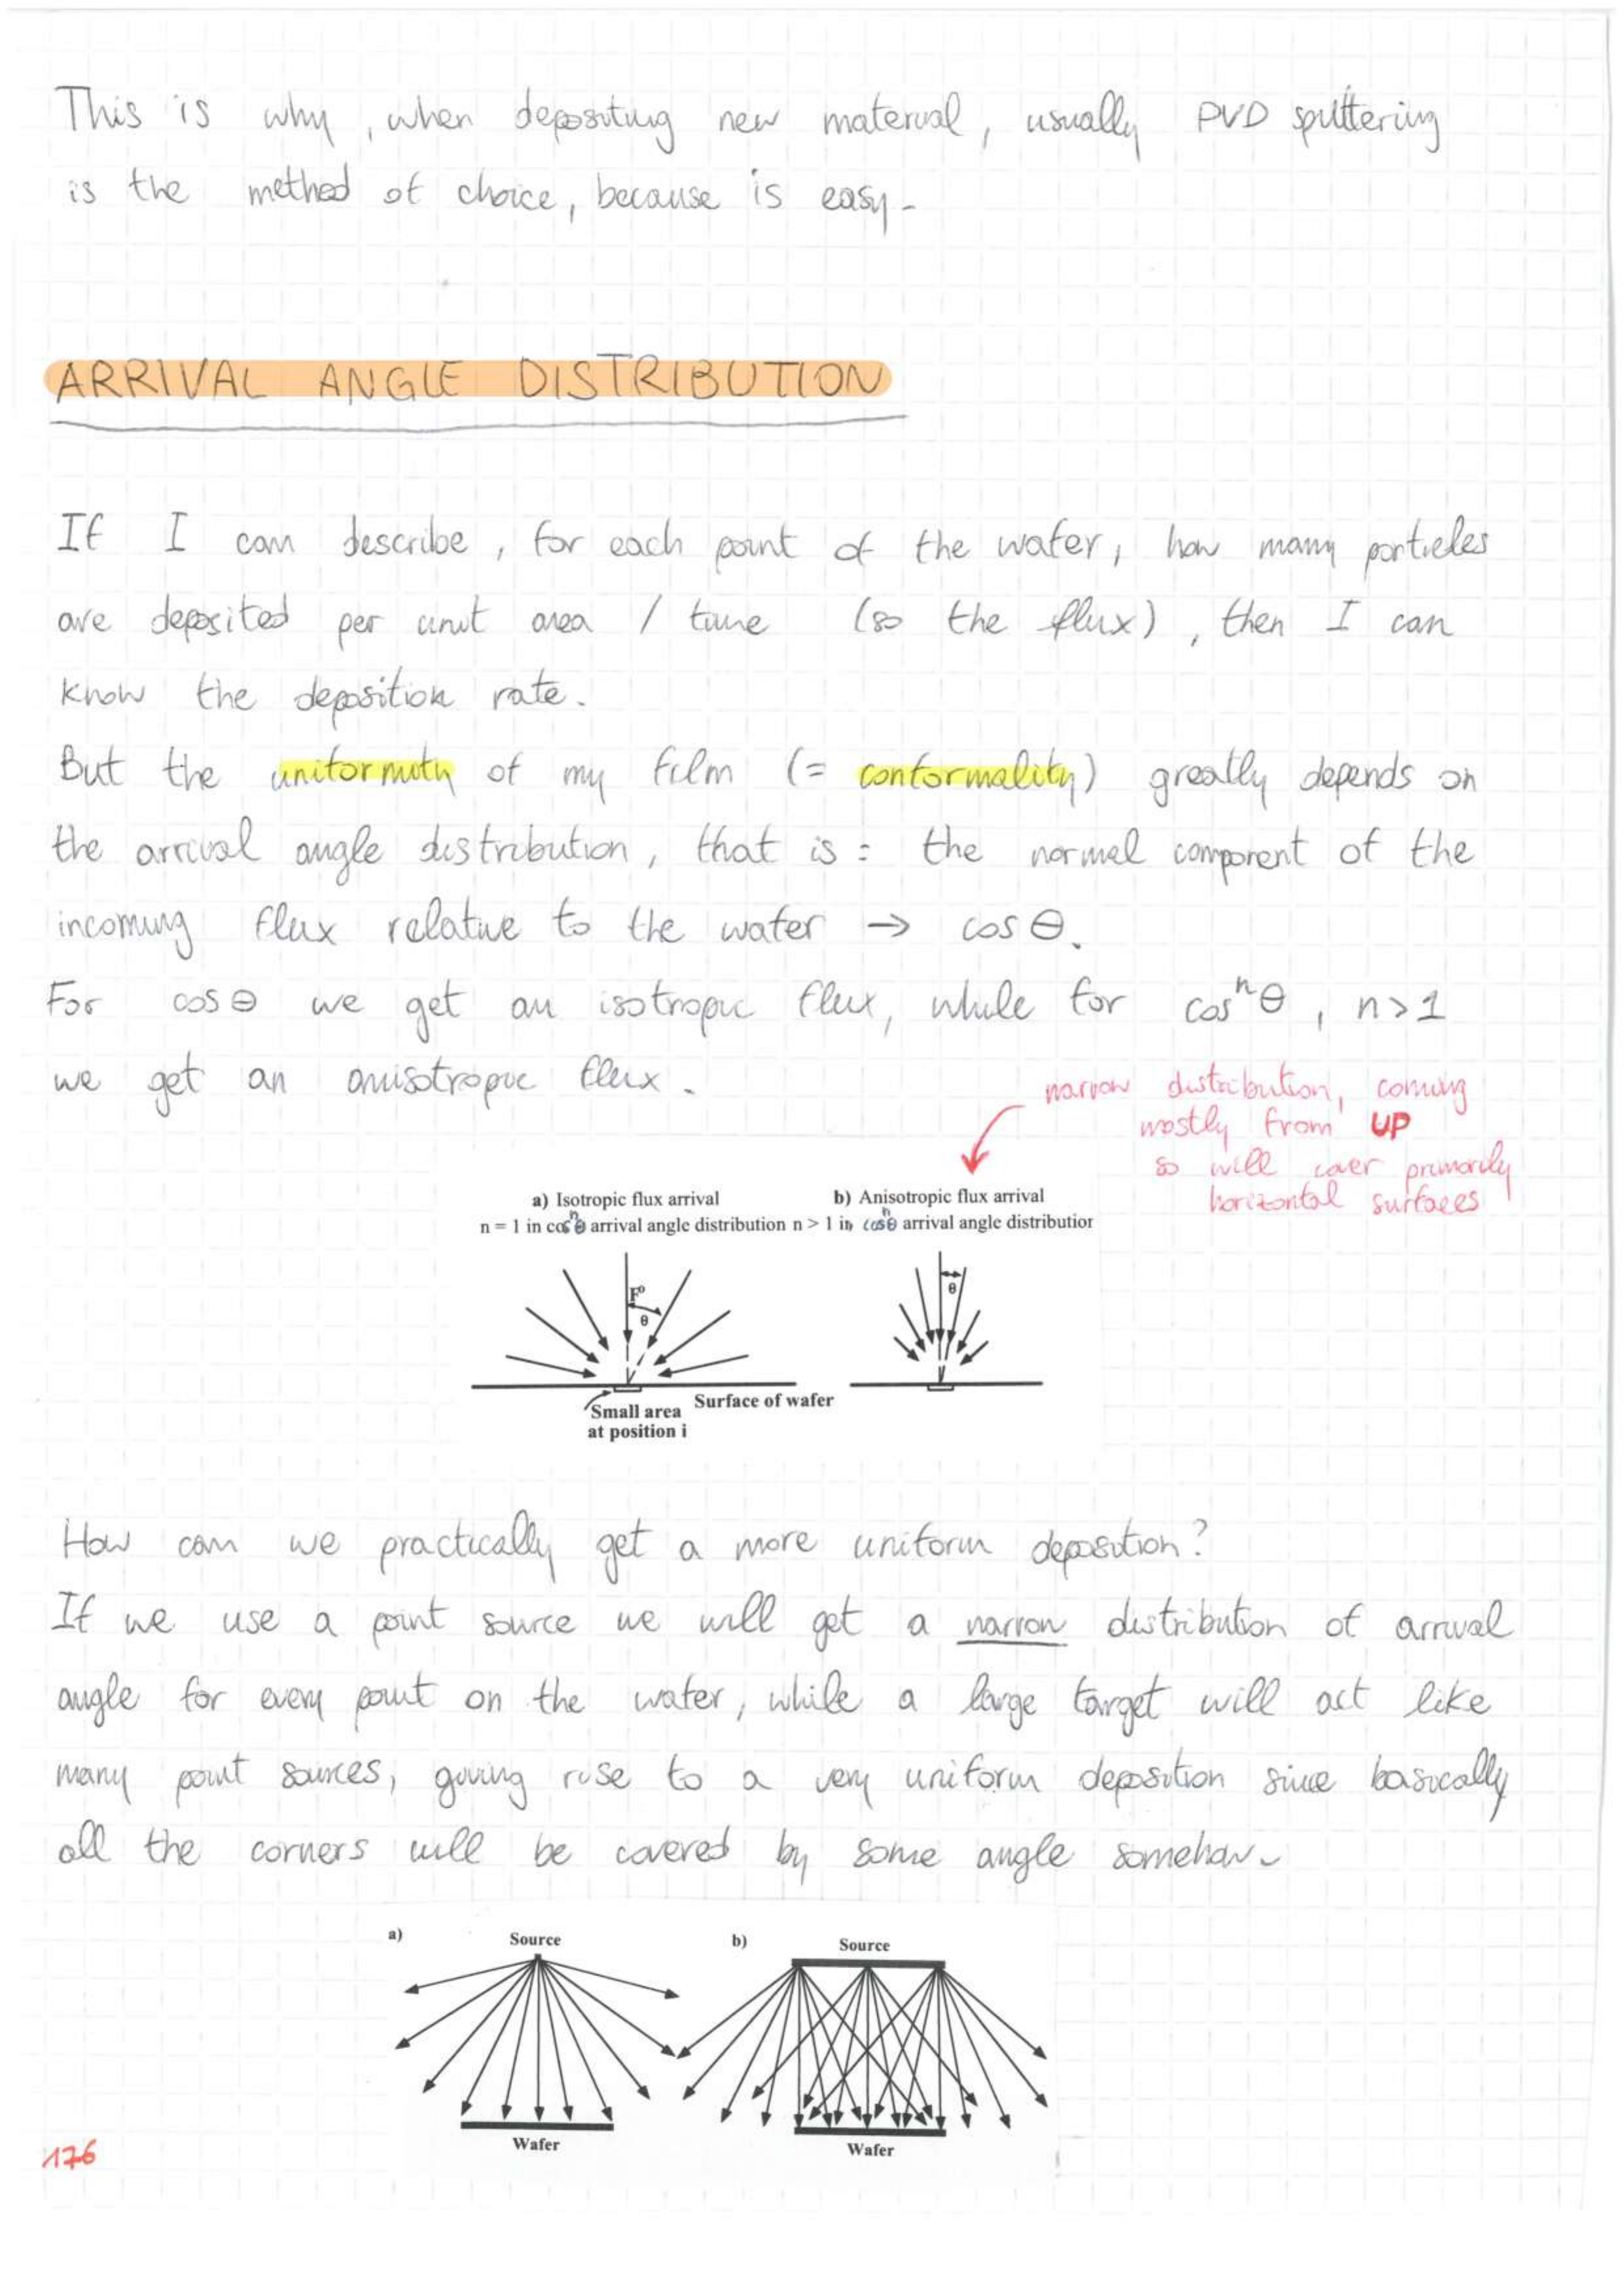 This is why, when depositing new material, usually PVD sputtering
is the method of choice, because is easy.
ARRIVAL ANGLE DISTRIBUTION
If I can describe, for each point of the wafer, how many particles
are deposited per unit area / time (so the flux), then I can
know the deposition rate.
But the uniformity of my film (= conformality) greatly depends on
the arrival angle distribution, that is: the normal component of the
incoming flux relative to the wafer → cos θ.
For cos θ we get an isotropic flux, while for cosⁿ θ, n > 1
we get an anisotropic flux.
narrow distribution, coming
mostly from UP
so will cover primarily
horizontal surfaces
a) Isotropic flux arrival
n = 1 in cosⁿ θ arrival angle distribution
b) Anisotropic flux arrival
n > 1 in cosⁿ θ arrival angle distribution
F°
θ
θ
Small area
at position i
Surface of wafer
How can we practically get a more uniform deposition?
If we use a point source we will get a narrow distribution of arrival
angle for every point on the wafer, while a large target will act like
many point sources, giving rise to a very uniform deposition since basically
all the corners will be covered by some angle somehow.
a) Source
Wafer
b) Source
Wafer
176